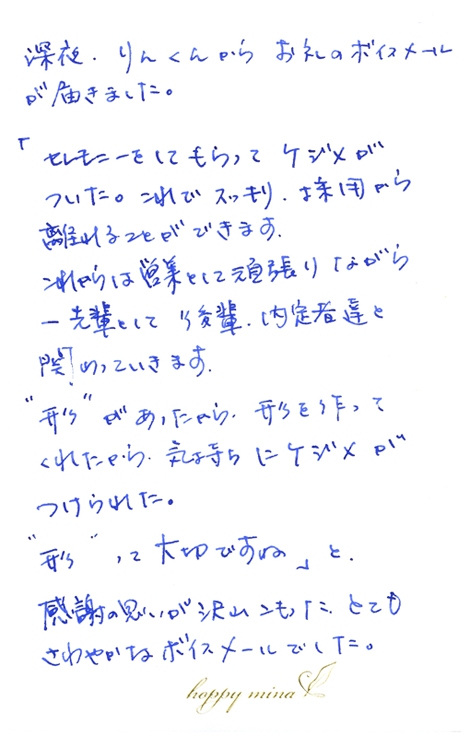 深夜、りんくんから お礼のボイスメール
が届きました。
「セレモニーをしてもらって ケジメが
ついた。これで スッキリ、採用から
離れることができます。
これからは営業として頑張りながら
一先輩として 後輩、内定者達と
関わっていきます。
"形" があったから、形を作って
くれたから、気持ちにケジメが
つけられた。
"形" って 大切ですね」と、
感謝の思いが沢山こもった、とても
さわやかなボイスメールでした。
happy mina